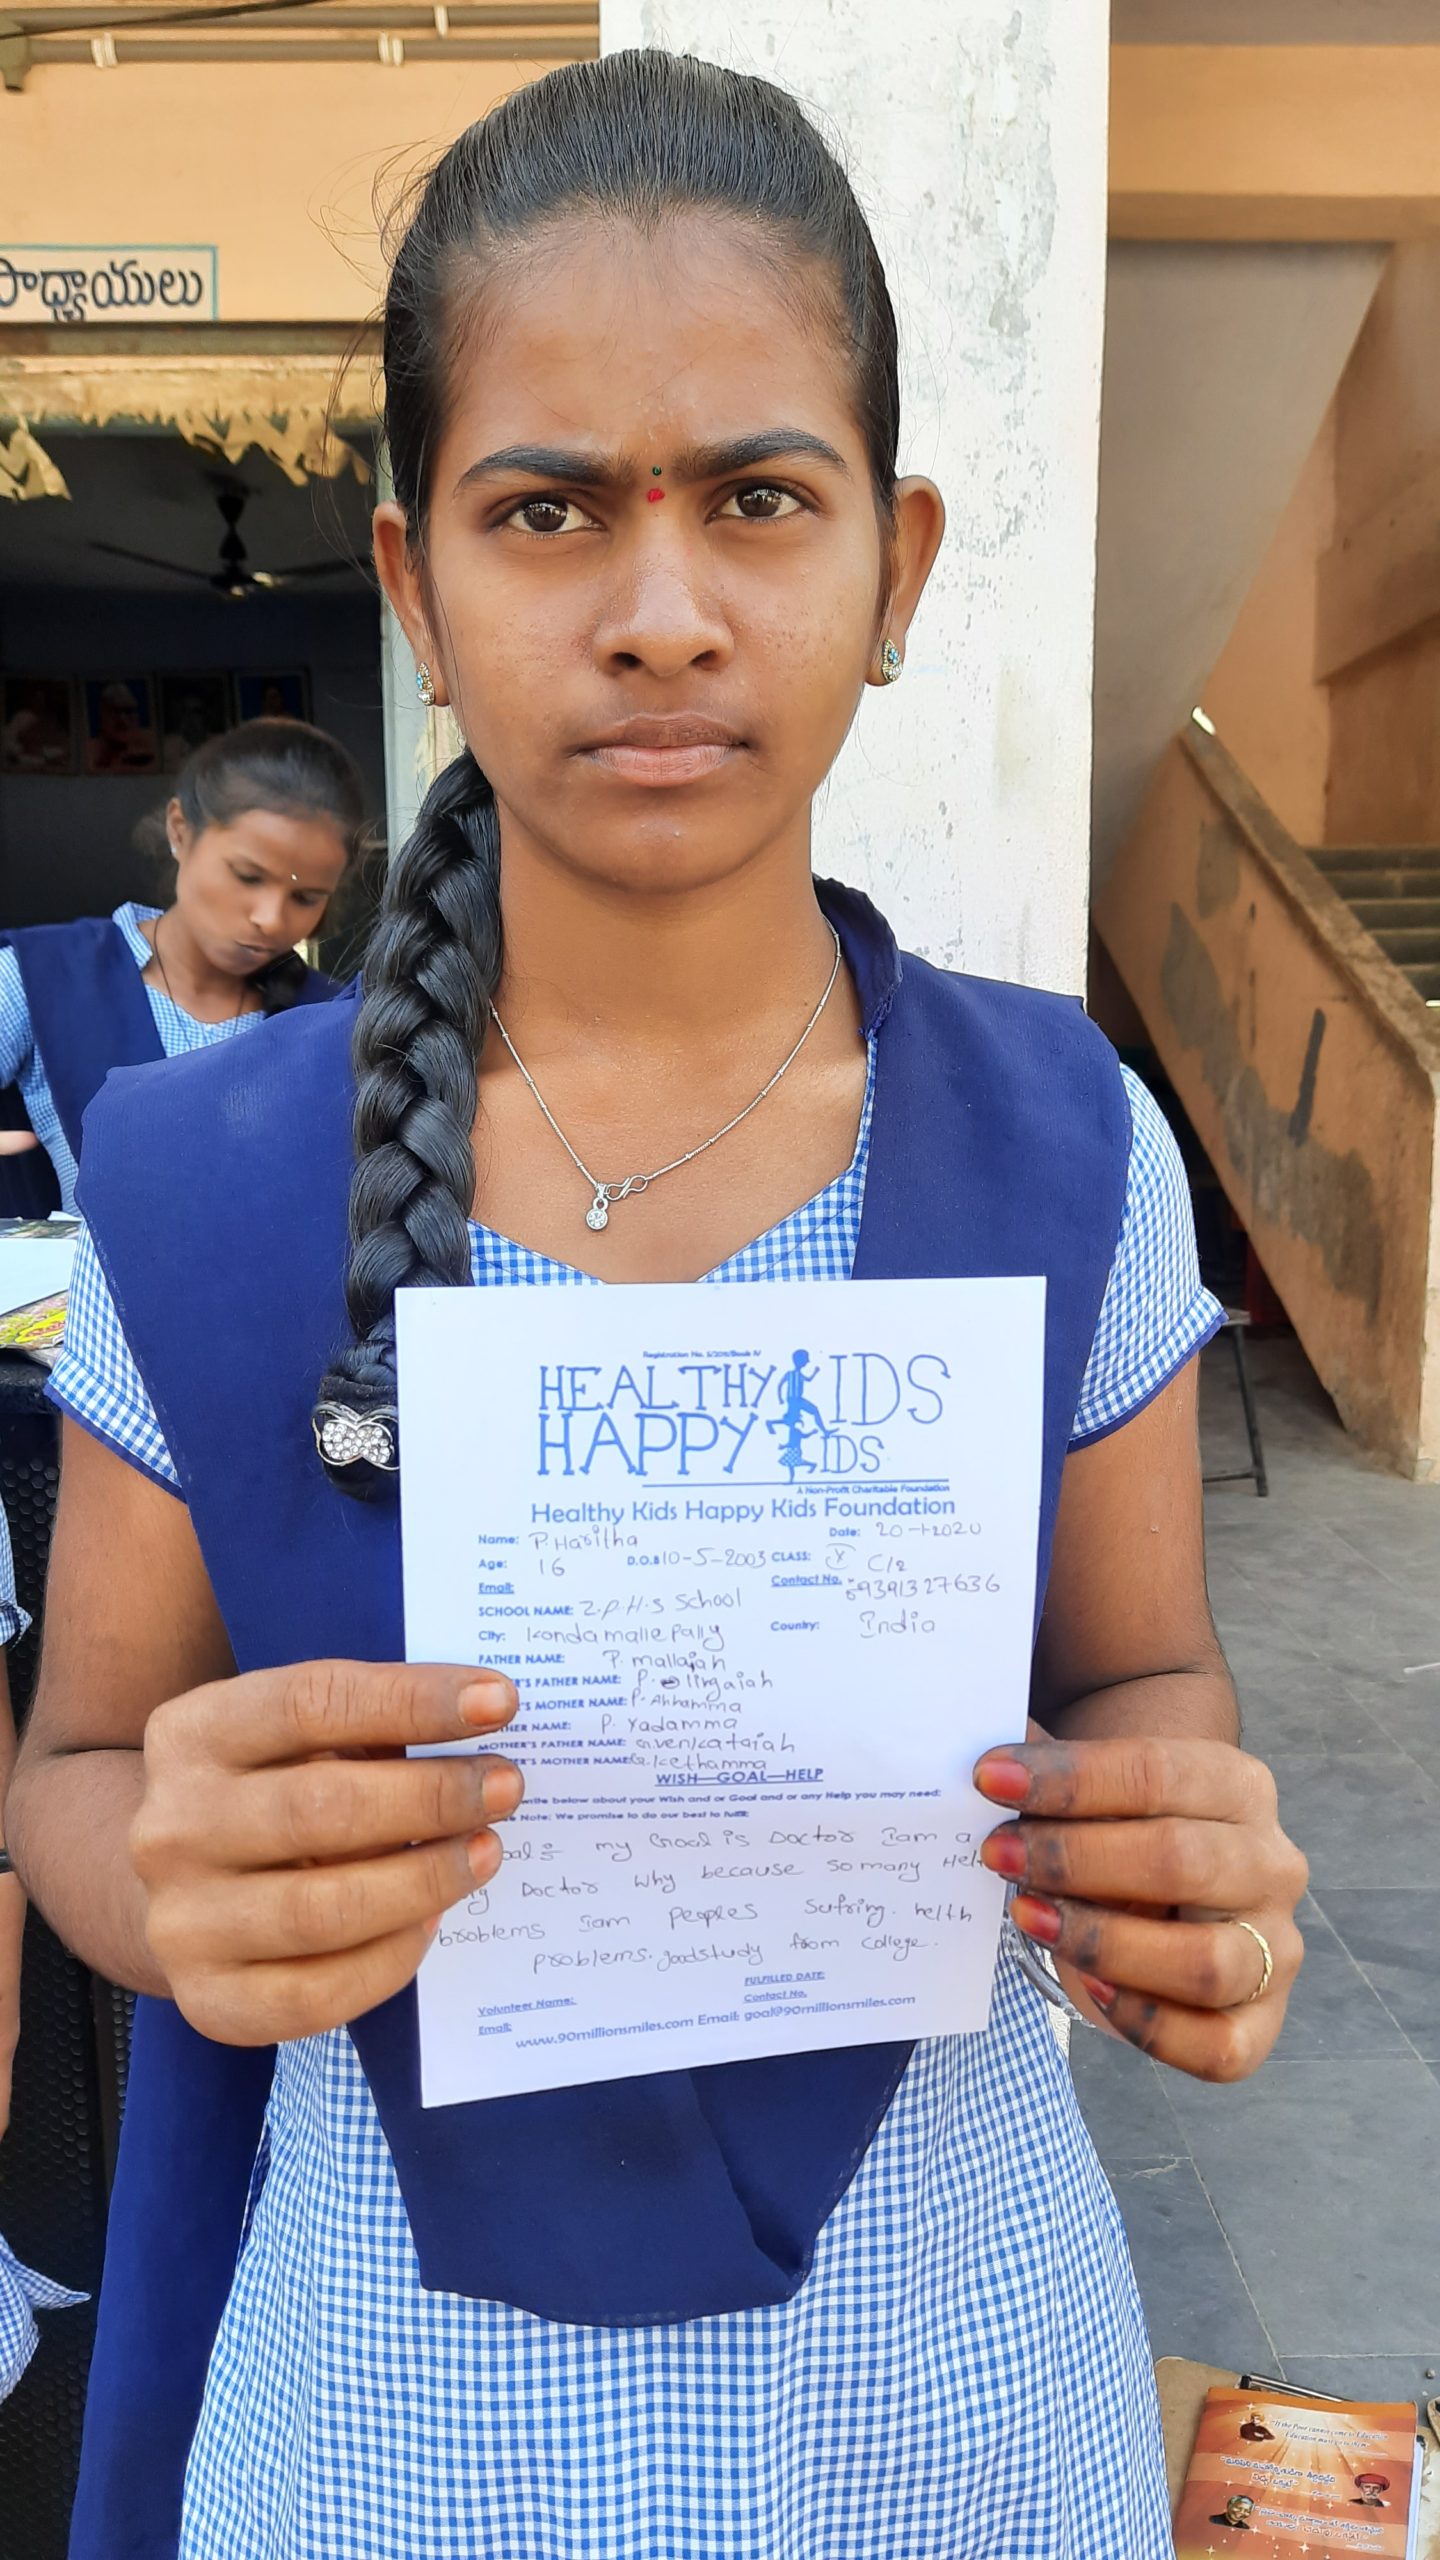 పాధ్యాయులు
Registration No. 5/2011/Book IV
HEALTHY KIDS
HAPPY KIDS
A Non-Profit Charitable Foundation
Healthy Kids Happy Kids Foundation
Name: P. Haritha Date: 20-1-2020
Age: 16 D.O.B 10-5-2003 CLASS: X C/2
Email: Contact No. 9391327636
SCHOOL NAME: Z.P.H.S School
City: Kondamallepally Country: India
FATHER NAME: P. mallaiah
R'S FATHER NAME: P. lingaiah
R'S MOTHER NAME: P.
HER NAME: P. Yadamma
MOTHER'S FATHER NAME: G.venkataiah
R'S MOTHER NAME: G.
WISH—GOAL—HELP
write below about your Wish and or Goal and or any Help you may need:
Note: We promise to do our best to fulfill:
oal my Goal is Doctor Iam a
Doctor why because so many Helt
problems Iam peoples sufring. helth
problems. goodstudy from college.
FULFILLED DATE:
Volunteer Name: Contact No.
Email:
www.90millionsmiles.com Email: goal@90millionsmiles.com
"If the Poor cannot come to Education
Education must go to them"